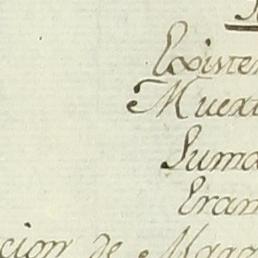 Existen
Muert
Suma
Eran
cion de Mago